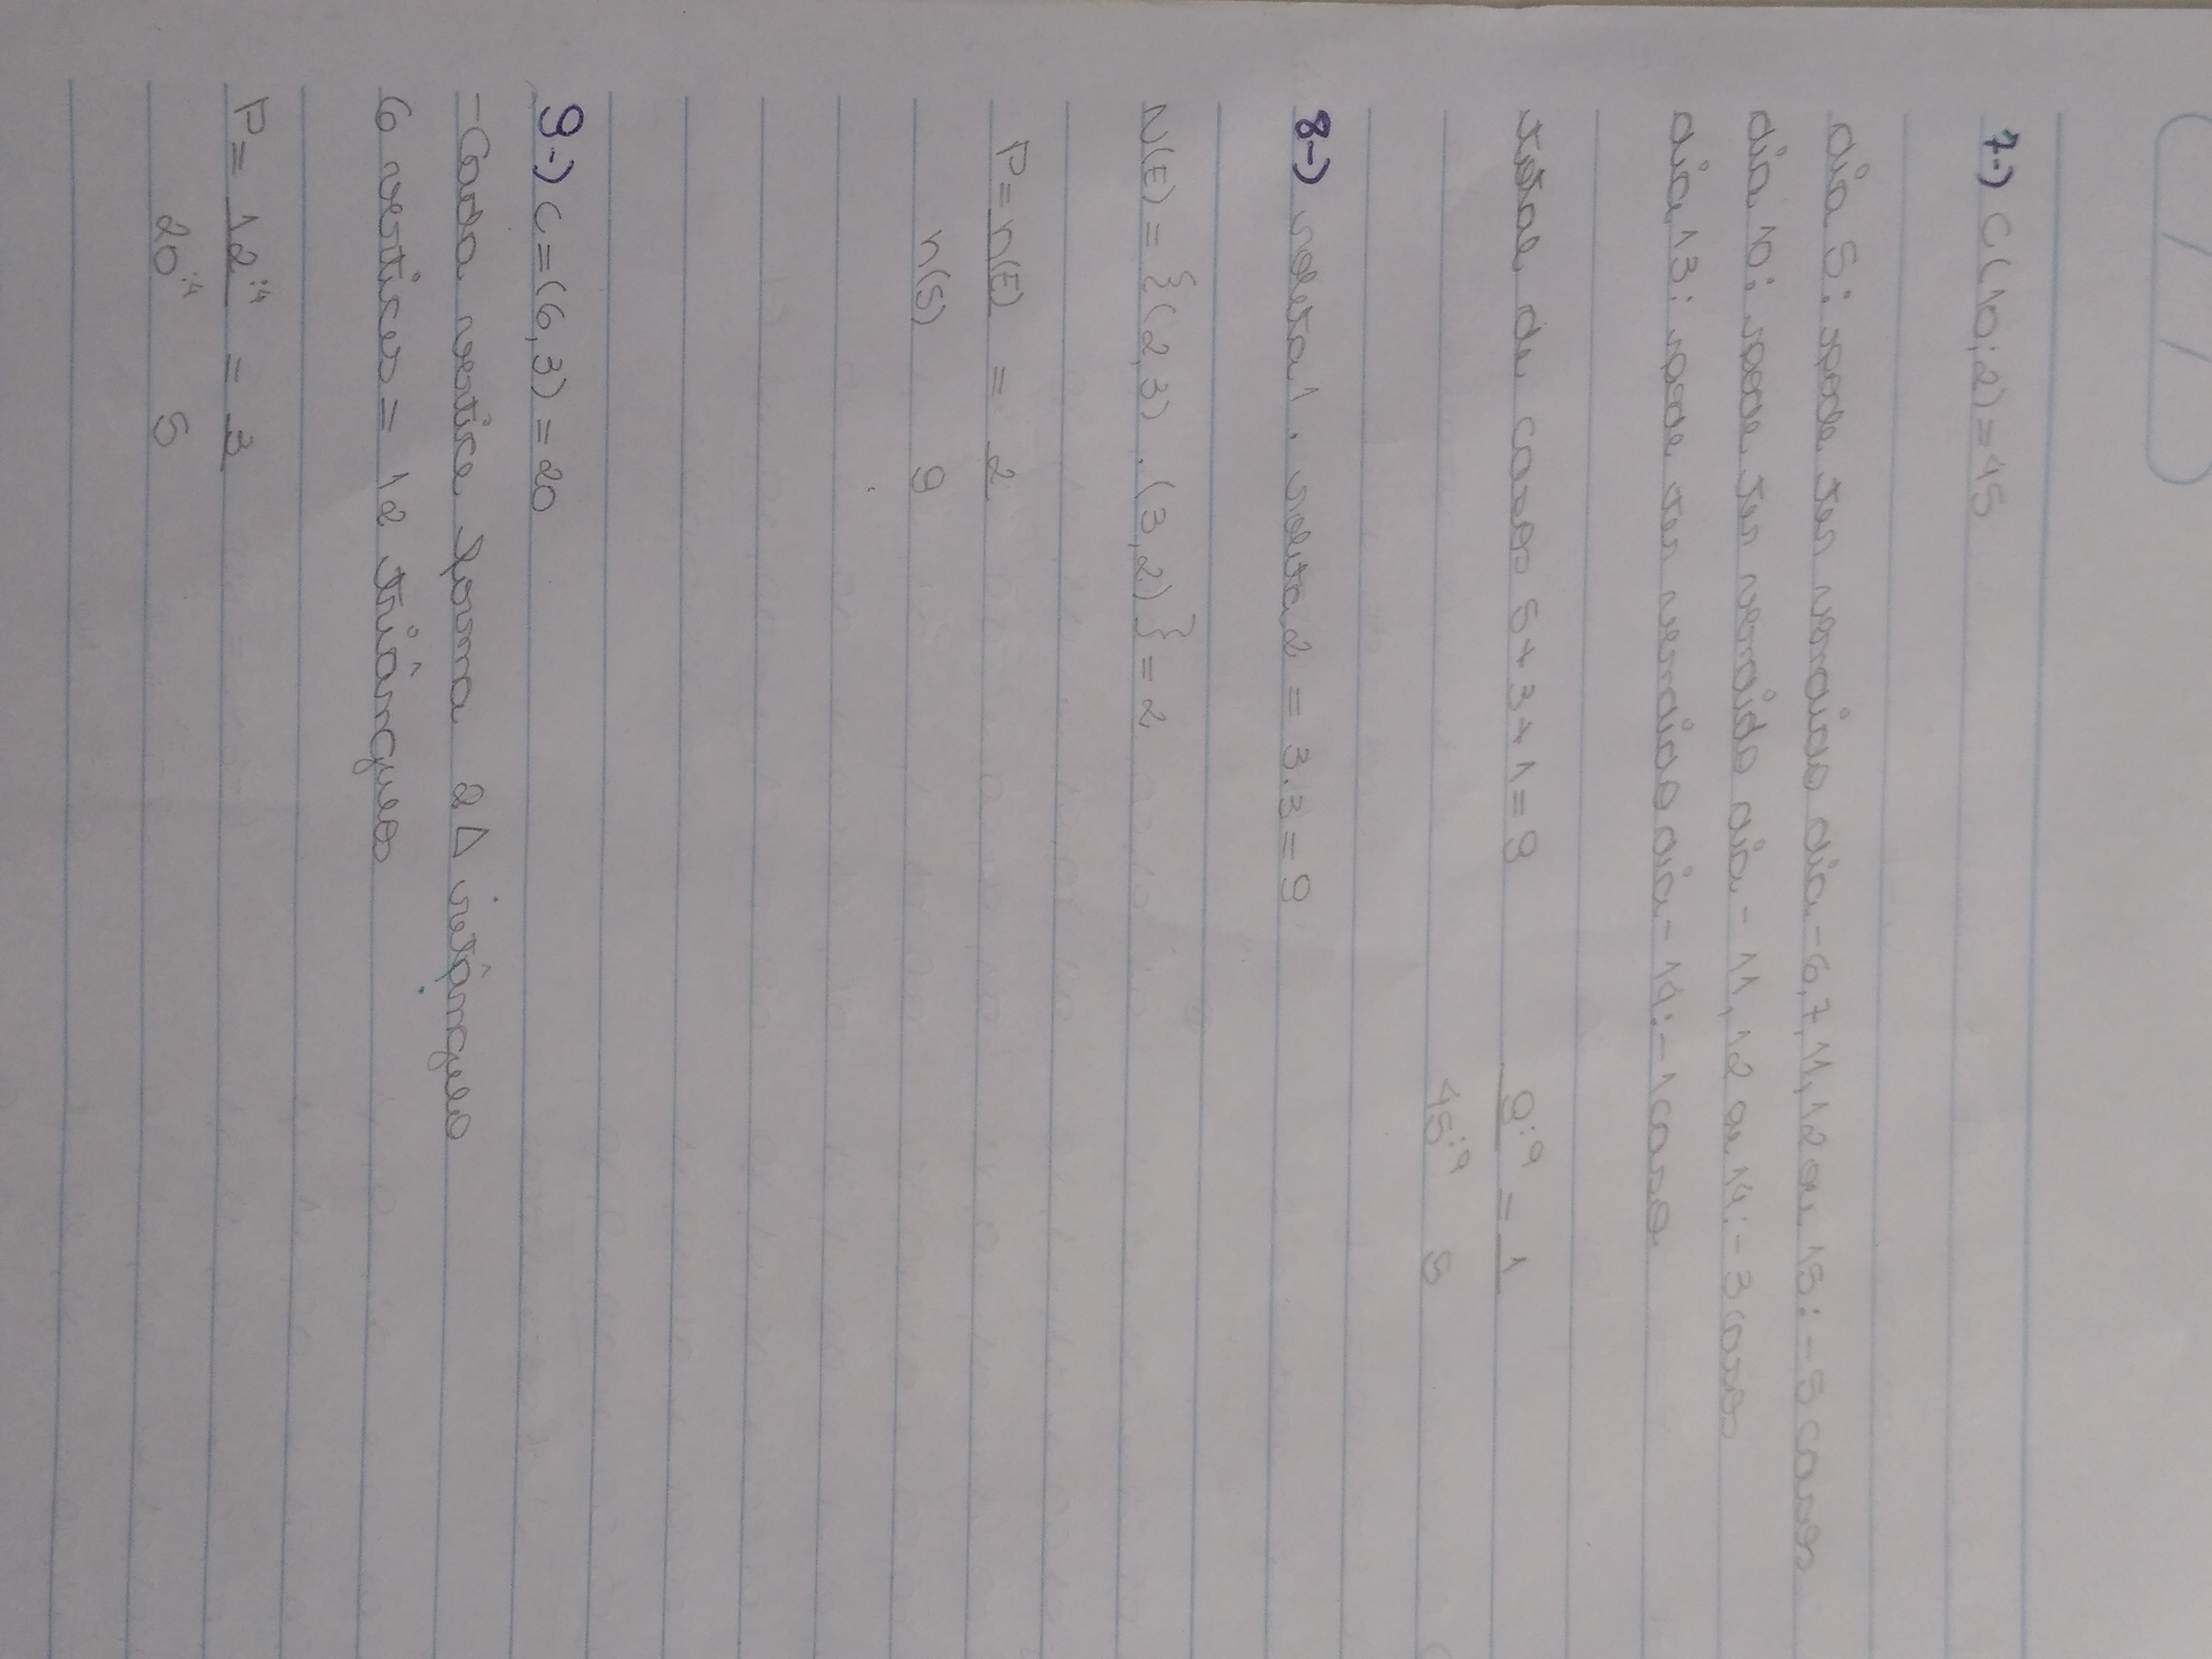 7-) C(10;2)=45
dia 5: pode ter vendido dia - 6, 7, 11, 12 ou 15: - 5 casos
dia 10: pode ter vendido dia - 11, 12 ou 14: - 3 casos
dia 13: pode ter vendido dia - 14: - 1 caso
total de casos 5+3+1=9 9:9 = 1
45:9 5
8-) roleta 1 . roleta 2 = 3.3=9
N(E) = {(2,3) . (3,2)} = 2
P= n(E) = 2
n(S) 9
9-) C=(6,3) = 20
- Cada vertice forma 2 Δ retângulo
6 vertices = 12 triângulos
P= 12:4 = 3
20:4 5